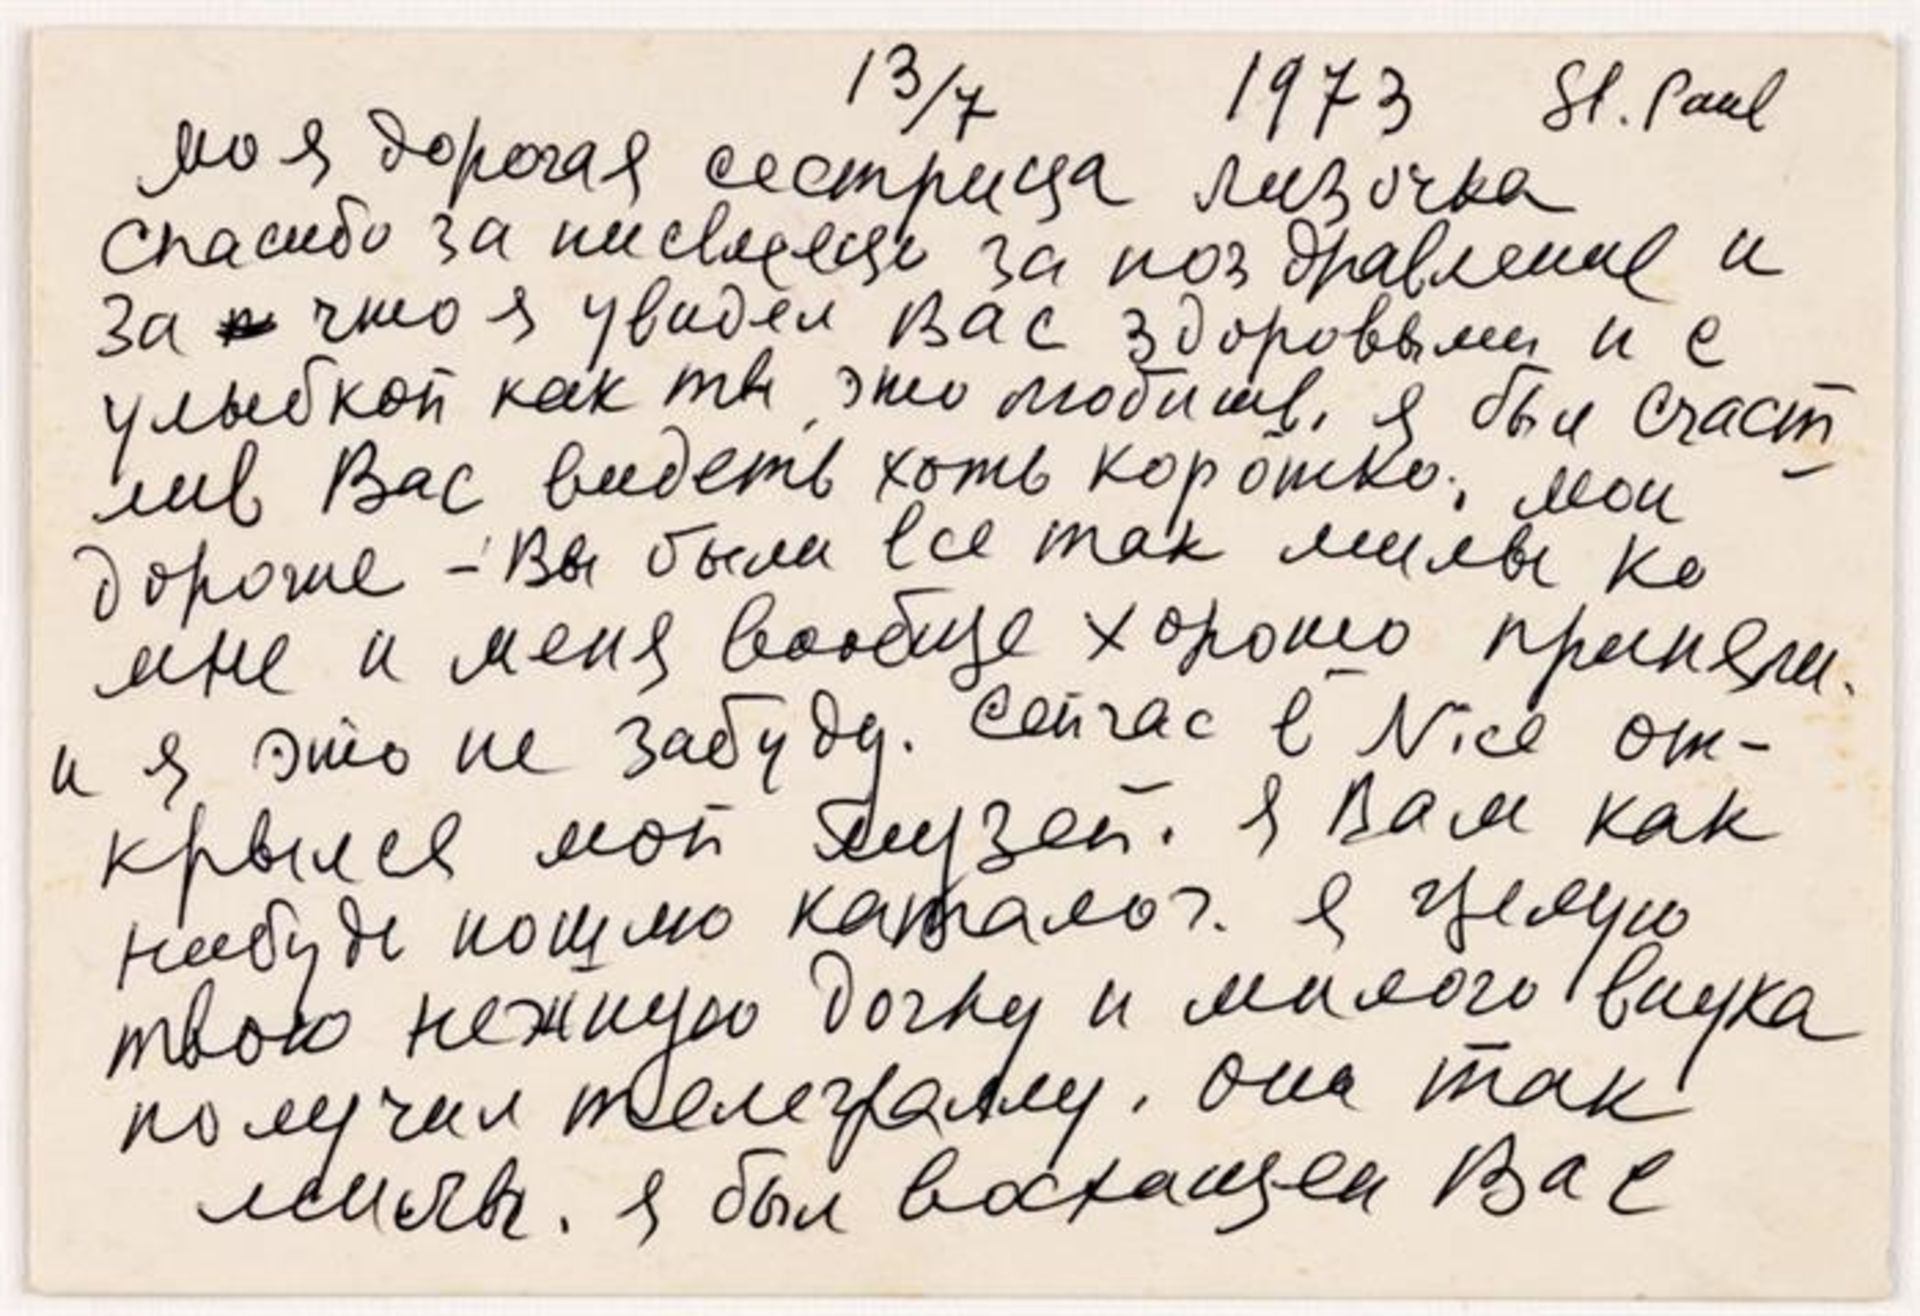 13/7 1973 St. Paul
моя дорогая сестрица лизочка
спасибо за письмецо за поздравление и
за что я увидел Вас здоровыми и с
улыбкой как ты это любишь, я был счаст
лив Вас видеть хоть коротко, мои
дорогие – Вы были все так милы ко
мне и меня вообще хорошо приняли.
и я это не забуду. Сейчас в Nice от-
крылся мой музей. я Вам как
нибудь пошлю каталог. я целую
твою нежную дочку и милого внука
получил телеграмму. они так
милы. я был восхищен Вас